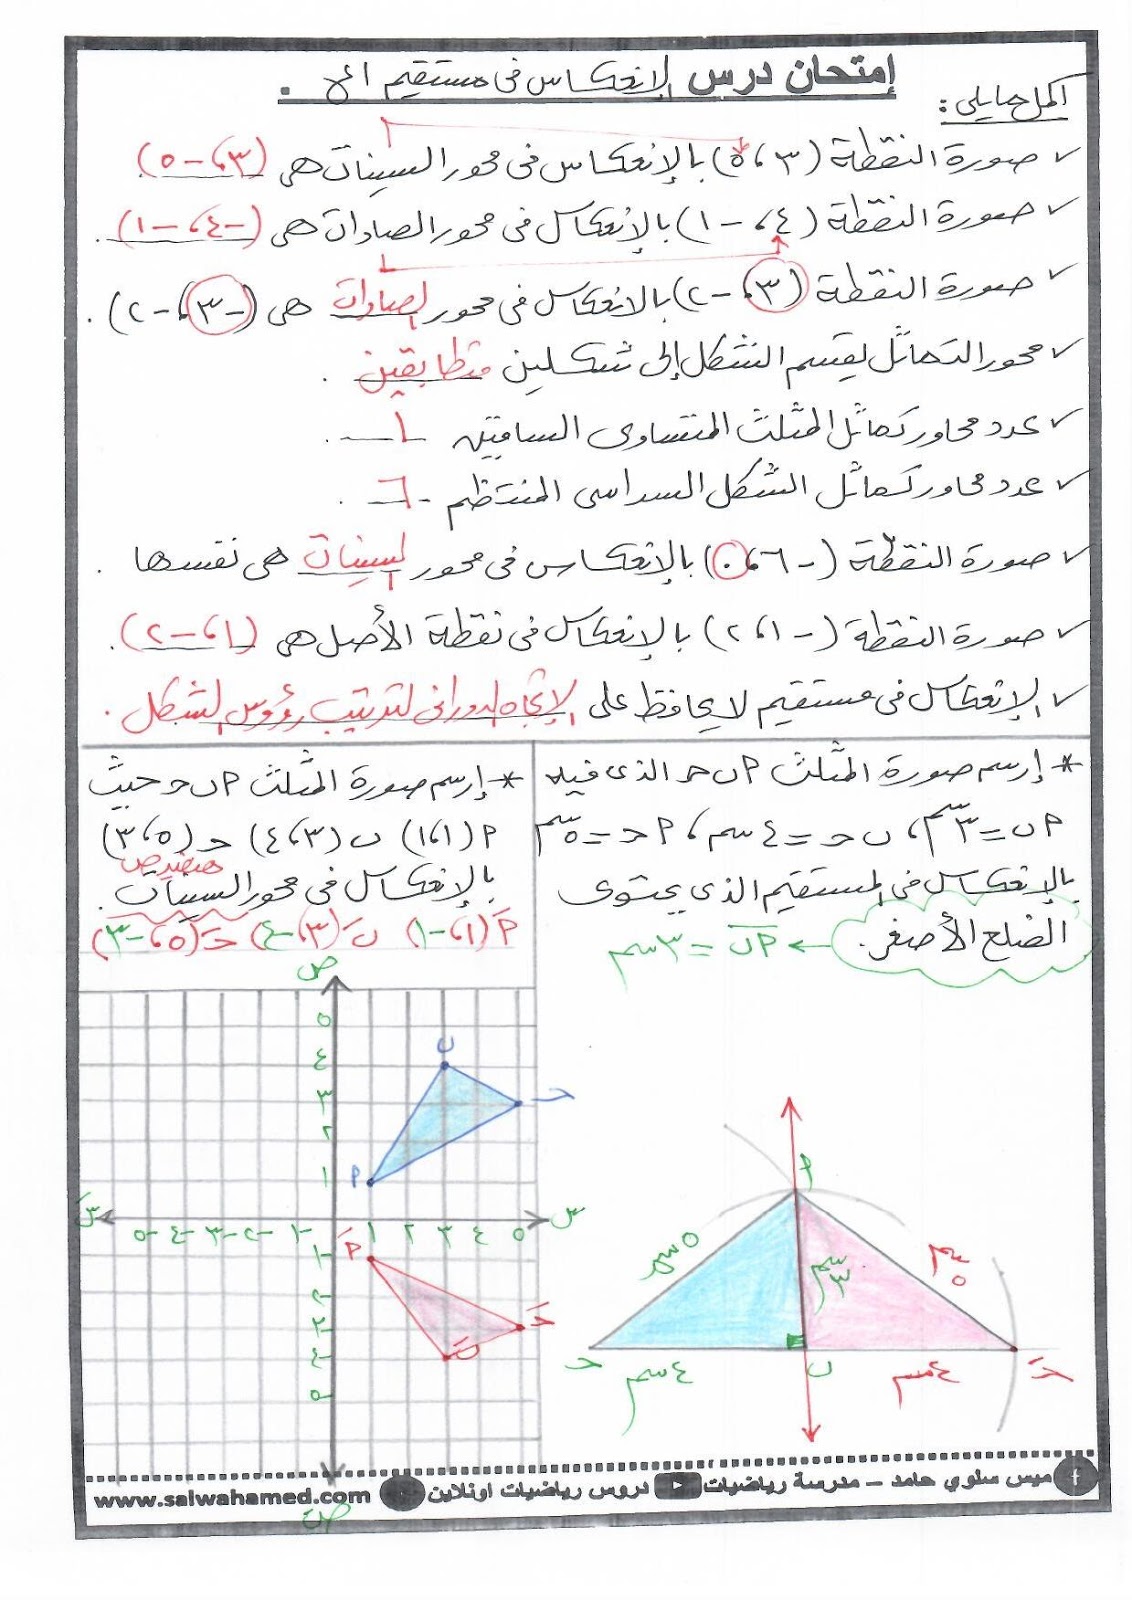 إمتحان درس الإنعكاس فى مستقيم
أكمل ما يلى :
✓ صورة النقطة (٣، ٥) بالإنعكاس فى محور السينات هى (٣، -٥)
✓ صورة النقطة (٤، -١) بالإنعكاس فى محور الصادات هى (-٤، -١) .
✓ صورة النقطة (٣، -٢) بالإنعكاس فى محور الصادات هى (-٣، -٢) .
✓ محور التماثل يقسم الشكل إلى شكلين متطابقين .
✓ عدد محاور تماثل المثلث المتساوى الساقين ١ .
✓ عدد محاور تماثل الشكل السداسى المنتظم ٦ .
✓ صورة النقطة (-٦، ٠) بالإنعكاس فى محور السينات هى نفسها .
✓ صورة النقطة (-١، ٢) بالإنعكاس فى نقطة الأصل هى (١، -٢) .
✓ الإنعكاس فى مستقيم لا يحافظ على الإتجاه الدورانى لترتيب رؤوس الشكل .
* إرسم صورة المثلث ٩ ب ح الذى فيه
٩ ب = ٣سم ، ب ح = ٤ سم ، ٩ ح = ٥سم
بالإنعكاس فى المستقيم الذى يحتوى
الضلع الأصغر . ← ٩ ب = ٣ سم
٩
٥سم
٣سم
٥سم
ح
ب
حَ
٤سم
٤سم
* إرسم صورة المثلث ٩ ب ح حيث
٩ (١، ١) ب (٣، ٤) ح (٥، ٣)
هنغير ص
بالإنعكاس فى محور السينات .
٩َ (١، -١) بَ (٣، -٤) حَ (٥، -٣)
ص
٥
٤ ب
٣ ح
٢
١ ٩
سَ -٥ -٤ -٣ -٢ -١ ١ ٢ ٣ ٤ ٥ س
-١ ٩َ
-٢
-٣ حَ
-٤ بَ
-٥
صَ
ميس سلوي حامد – مدرسة رياضيات دروس رياضيات اونلاين www.salwahamed.com